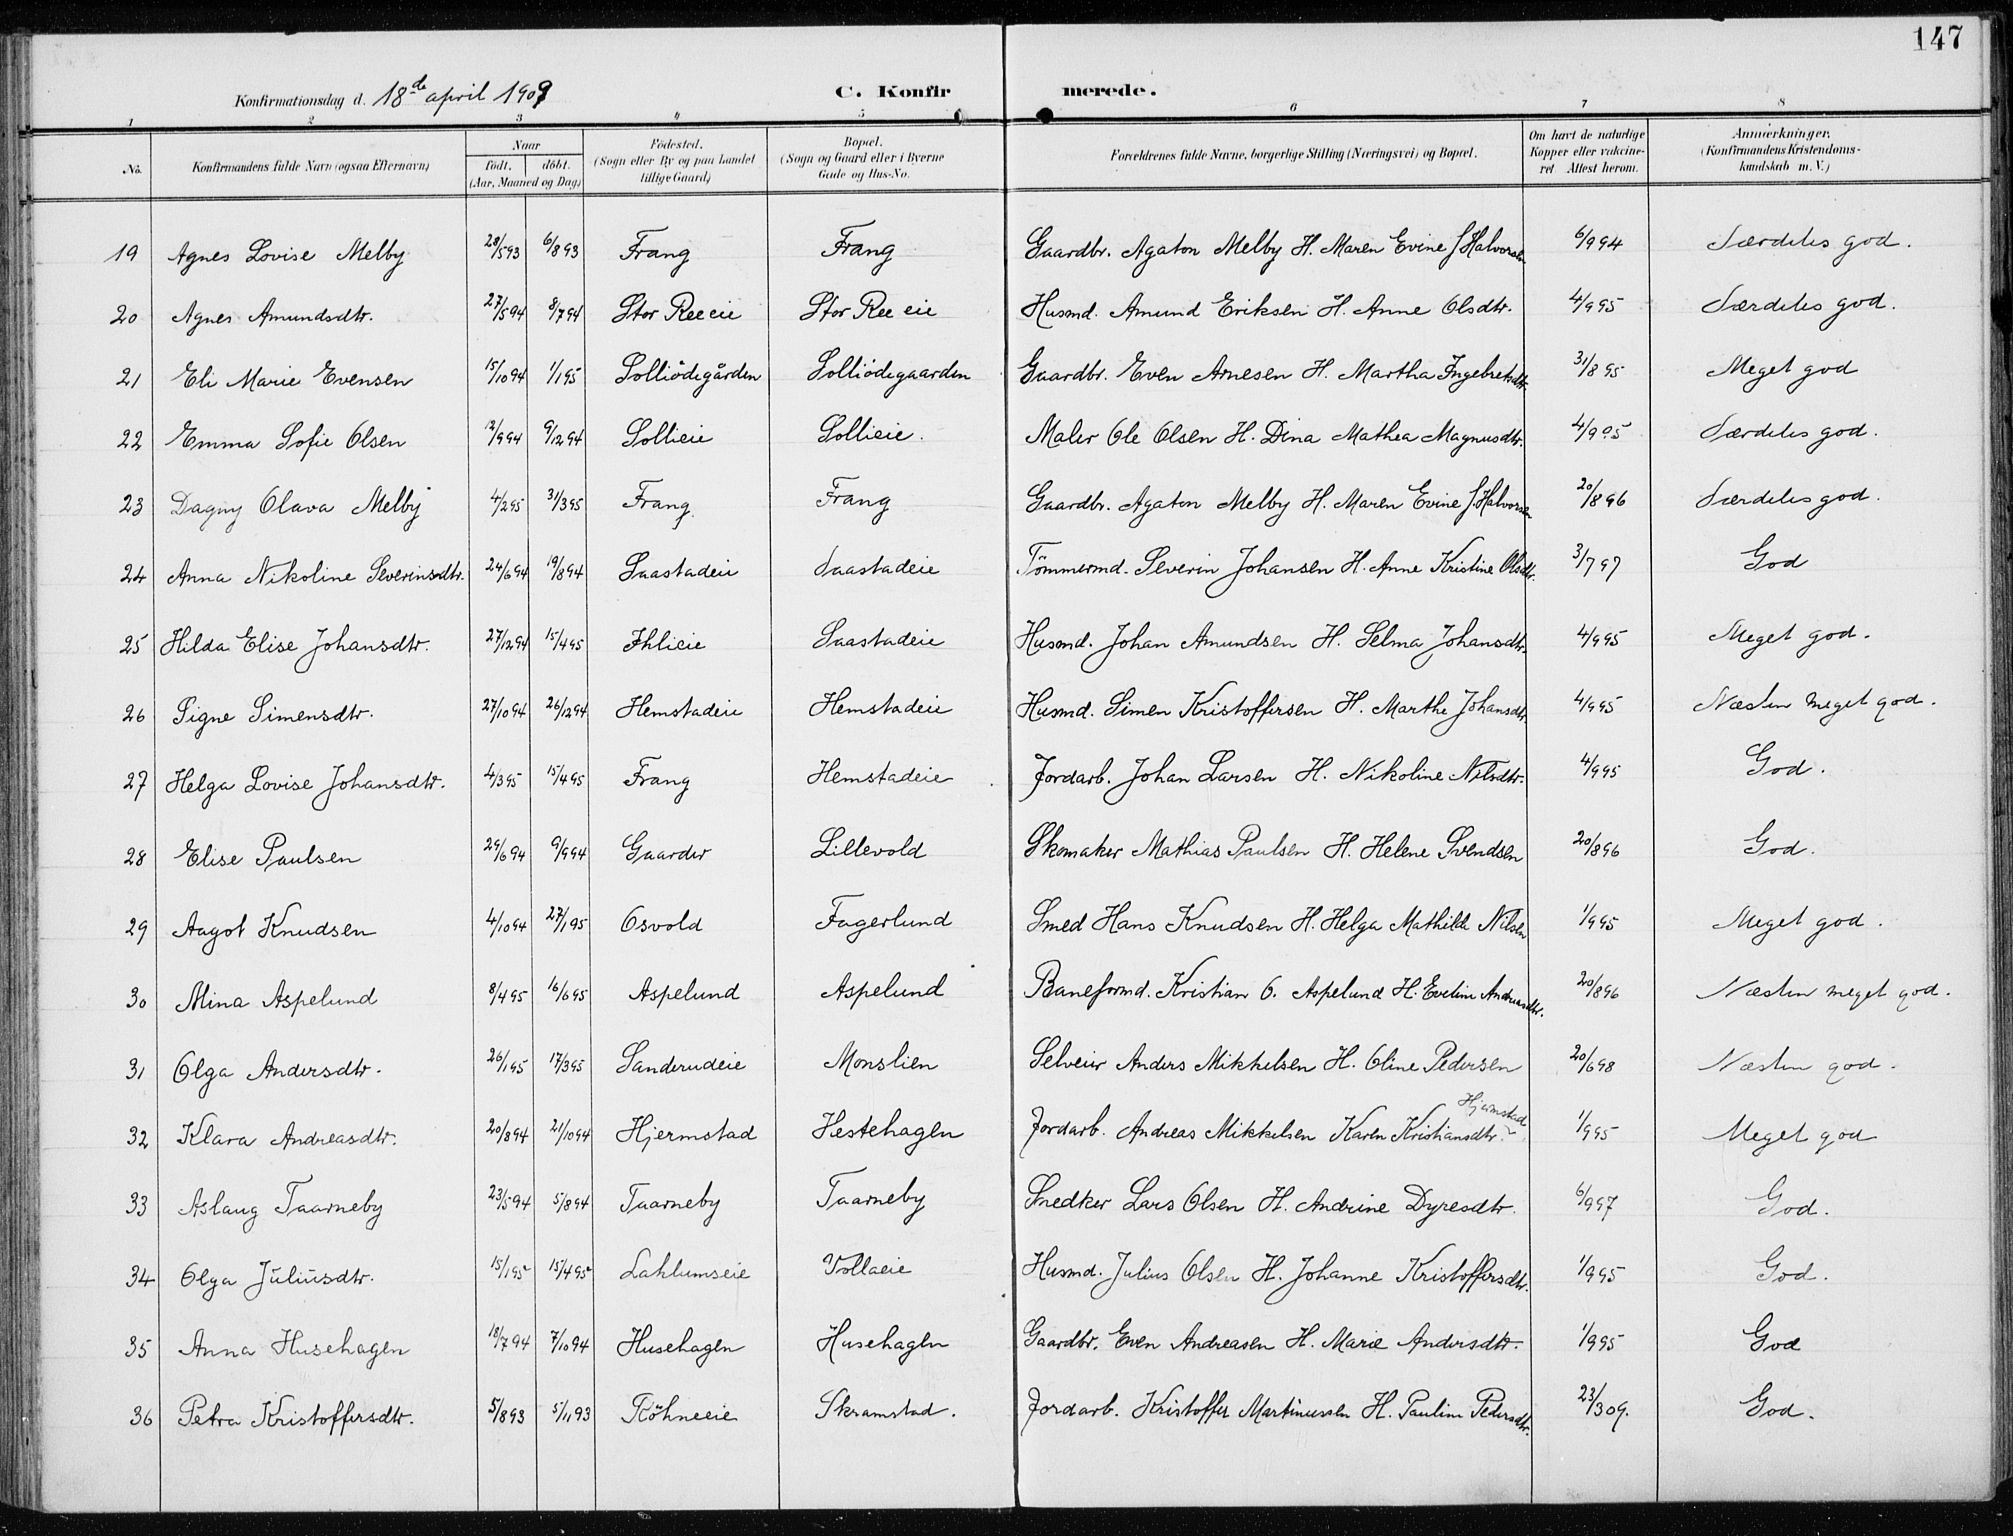 147
Konfirmationsdag d. 18de april 1909 C. Konfirmerede.
1 2 3 4 5 6 7 8
No. Konfirmandens fulde Navn (ogsaa Efternavn) Naar født. døbt. (Aar, Maaned og Dag) Fødested. (Sogn eller By og paa Landet tillige Gaard) Bopæl. (Sogn og Gaard eller i Byerne Gade og Hus-No. Forældrenes fulde Navne, borgerlige Stilling (Næringsvei) og Bopæl. Om havt de naturlige Kopper eller vakcineret Attest herom. Anmærkninger. (Konfirmandens Kristendomskundskab m. V.)
19 Agnes Lovise Melby 28/5 93 6/8 93 Frang Frang Gaardbr. Agaton Melby H. Maren Evine f Halvorsen 6/9 94 Særdeles god.
20 Agnes Amundsdtr. 27/5 94 8/7 94 Stor Ree eie Stor Ree eie Husmd. Amund Eriksen H. Anne Olsdtr. 4/9 95 Særdeles god.
21 Eli Marie Evensen 15/10 94 1/1 95 Solliödegården Solliödegaarden Gaardbr. Even Arnesen H. Martha Ingebretsdtr 31/8 95 Meget god
22 Emma Sofie Olsen 2/9 94 9/12 94 Sollieie Sollieie. Maler Ole Olsen H. Dina Mathea Magnusdtr. 4/9 05 Særdeles god.
23 Dagny Olava Melby 4/2 95 31/3 95 Frang. Frang Gaardbr. Agaton Melby H. Maren Evine f. Halvorsen 20/8 96 Særdeles god.
24 Anna Nikoline Severinsdtr. 24/6 94 19/8 94 Saastadeie Saastadeie Tömmermd. Severin Johansen H. Anne Kristine Olsdtr. 3/7 97 God
25 Hilda Elise Johansdtr. 27/12 94 15/4 95 Ihlieie Saastadeie Husmd. Johan Amundsen H. Selma Johansdtr. 4/9 95 Meget god.
26 Signe Simensdtr. 27/10 94 26/12 94 Hemstadeie Hemstadeie Husmd. Simen Kristoffersen H. Marthe Johansdtr. 4/9 95 Næsten meget god.
27 Helga Lovise Johansdtr. 4/3 95 15/4 95 Frang Hemstadeie Jordarb. Johan Larsen H. Nikoline Nilsdtr. 4/9 95 God.
28 Elise Paulsen 29/6 94 9/9 94 Gaarder Lillevold Skomaker Mathias Paulsen H. Helene Svendsen 20/8 96 God.
29 Aagot Knudsen 4/10 94 27/1 95 Osvold Fagerlund Smed Hans Knudsen H. Helga Mathilde Nilsen 1/9 95 Meget god.
30 Mina Aspelund 8/4 95 16/6 95 Aspelund Aspelund Baneformd. Kristian O. Aspelund H. Eveline Andreasdtr. 20/8 96 Næsten meget god.
31 Olga Andersdtr. 26/1 95 17/3 95 Sanderudeie Monslien Selveier Anders Mikkelsen H. Oline Pedersen 20/6 98 Næsten god.
32 Klara Andreasdtr. 20/8 94 21/10 94 Hjermstad Hestehagen Jordarb. Andreas Mikkelsen Karen Kristiansdtr. Hjermstad 1/9 95 Meget god
33 Aslaug Taarneby 23/5 94 5/8 94 Taarneby Taarneby Snedker Lars Olsen H. Andrine Dyresdtr. 6/9 97 God.
34 Olga Juliusdtr. 15/1 95 15/4 95 Laklumseie Vollaeie Husmd. Julius Olsen H. Johanne Kristoffersdtr. 1/9 95 God.
35 Anna Husehagen 18/7 94 7/10 94 Husehagen Husehagen Gaardbr. Even Andreasen H. Marie Andersdtr. 1/9 95 God
36 Petra Kristoffersdtr. 5/8 93 5/11 93 Röhneeie Skramstad. Jordarb. Kristoffer Martinussen H. Pauline Pedersdtr. 23/3 09. God.